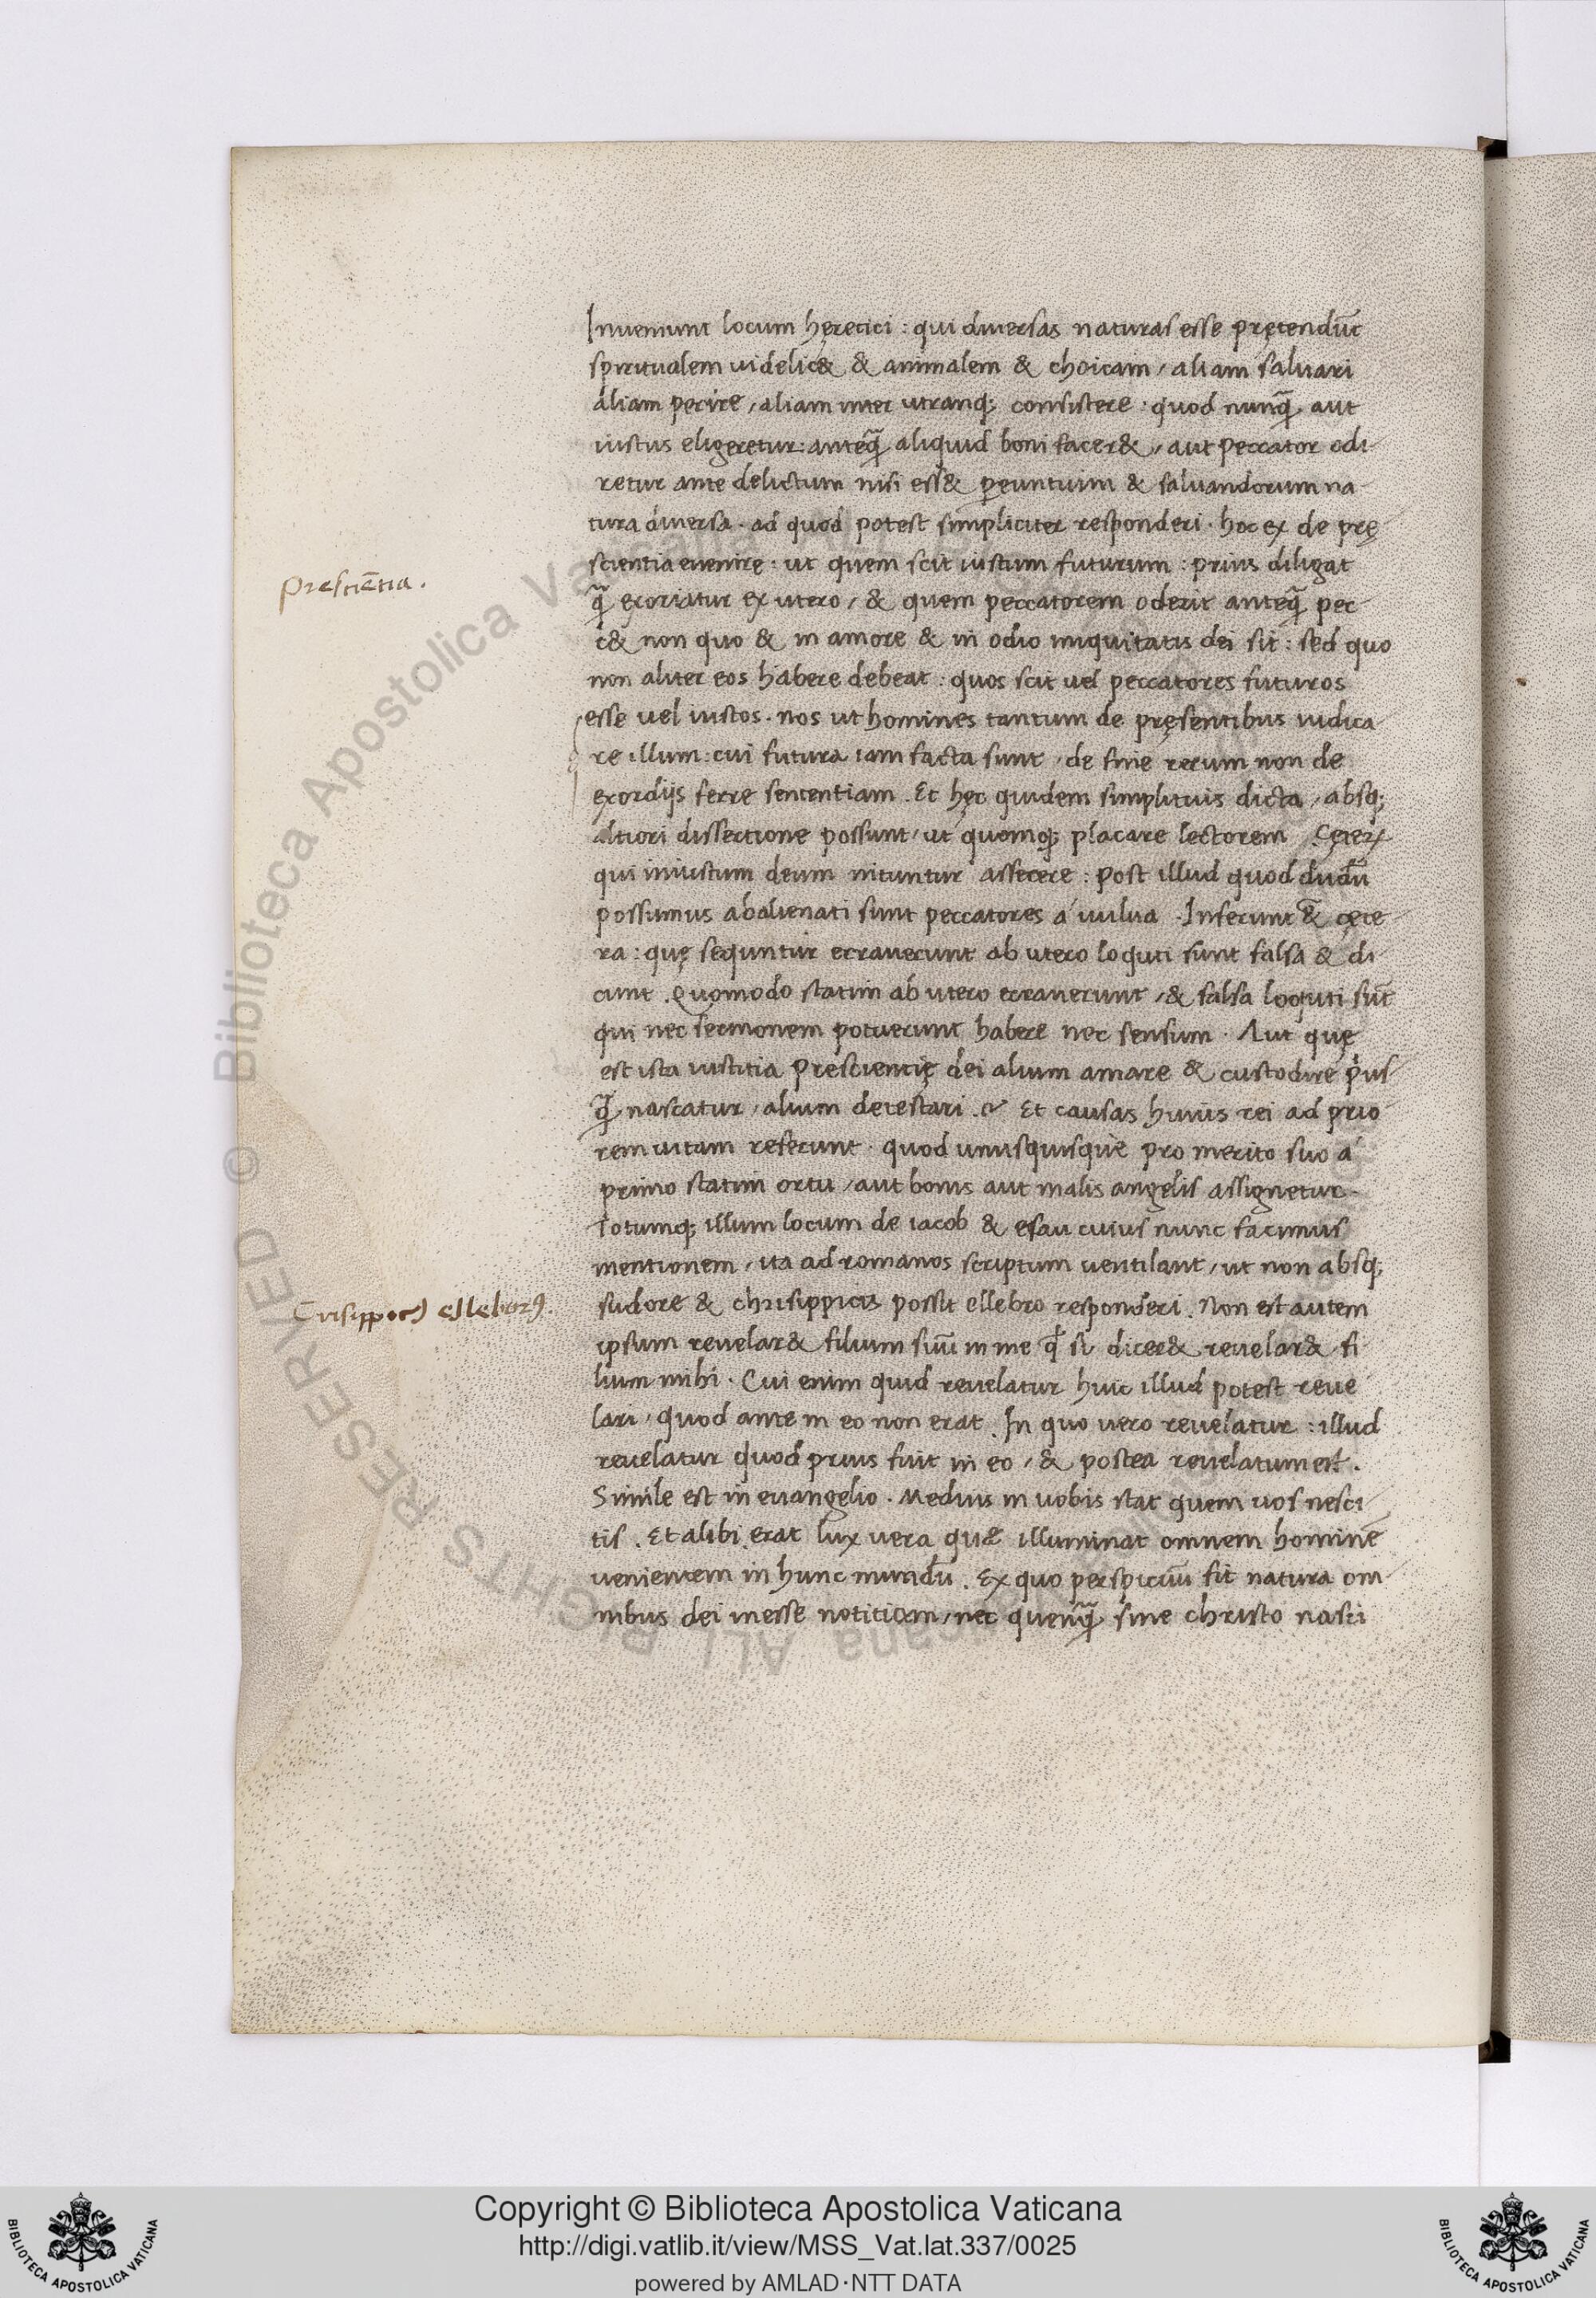 Inueniunt locum hęretici : qui diuersas naturas esse prętendūt
spiritualem uidelic& & animalem & choicam / aliam saluari
aliam perire / aliam inter utranq; consistere · quod nunq̃ aut
iustus eligeretur : anteq̃ aliquid boni facer& / aut peccator odi-
retur ante delictum nisi ess& ꝑeuntuim & saluandorum na-
tura diuersa · ad quod potest simpliciter responderi · hoc ex de prę
scientia euenire : ut quem scit iustum futurum : prius diligat
q̃ exoriatur ex utero / & quem peccatorem oderit anteq̃ pec-
c& non quo & in amore & in odio iniquitatis dei sit : sed quo
non aliter eos habere debeat : quos scit uel peccatores futuros
esse uel iustos · nos ut homines tantum de pręsentibus iudica
re illum : cui futura iam facta sunt / de fine rerum non de
exordijs ferre sententiam . Et hęc quidem simplitius dicta / absq;
altiori dissertione possunt / ut quomq; placare lectorem . Cęteꝝ
qui iniustum deum nituntur asserere : post illud quod dudū
possumus abalienati sunt peccatores á uulua . Inferunt & cęte
ra : quę sequntur errauerunt ab utero loquti sunt falsa & di
cunt . Quomodo statim ab utero errauerunt / & falsa loquti sūt
qui nec sermonem potuerunt habere nec sensum . Aut quę
est ista iustitia prescientię dei alium amare & custodire pⁱus
q̃ nascatur / alium detestari . Et causas huius rei ad prio
rem uitam referunt · quod unusquisque pro merito suo á
primo statim ortu / aut bonis aut malis angelis assignetur -
Totumq; illum locum de iacob & esau cuius nunc facimus
mentionem / ita ad romanos scriptum uentilant / ut non absq;
sudore & chrisippicis possit ellebro responderi . Non est autem
ipsum reuelar& filium suū in me qᵈ si dicer& reuelar& fi
lium mihi . Cui enim quid reuelatur huic illud potest reue
lari / quod ante in eo non erat . In quo uero reuelatur : illud
reuelatur quod prius fuit in eo / & postea reuelatum est .
Simile est in euangelio . Medius in uobis stat quem uos nesci
tis . Et alibi . erat lux uera quæ illuminat omnem hominē
uenientem in hunc mundū . Ex quo perspicuū fit natura om
nibus dei inesse notitiam / nec quenq̃ sine christo nasci
prescētia .
Crisippeꝰ elleborꝰ .
Copyright © Biblioteca Apostolica Vaticana
http://digi.vatlib.it/view/MSS_Vat.lat.337/0025
powered by AMLAD·NTT DATA
BIBLIOTECA APOSTOLICA VATICANA
BIBLIOTECA APOSTOLICA VATICANA